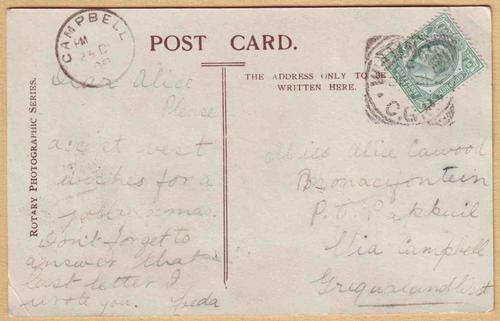 CAMPBELL
PM
POST CARD.
THE ADDRESS ONLY TO BE
WRITTEN HERE.
ROTARY PHOTOGRAPHIC SERIES.
C.G.H.
Dear Alice
Please
accept best
wishes for a
Xmas.
Don't forget to
answer that
last letter I
wrote you. Freda
Miss Alice Cawood
P. O. Pakkuil
Via Campbell
Griqualand West